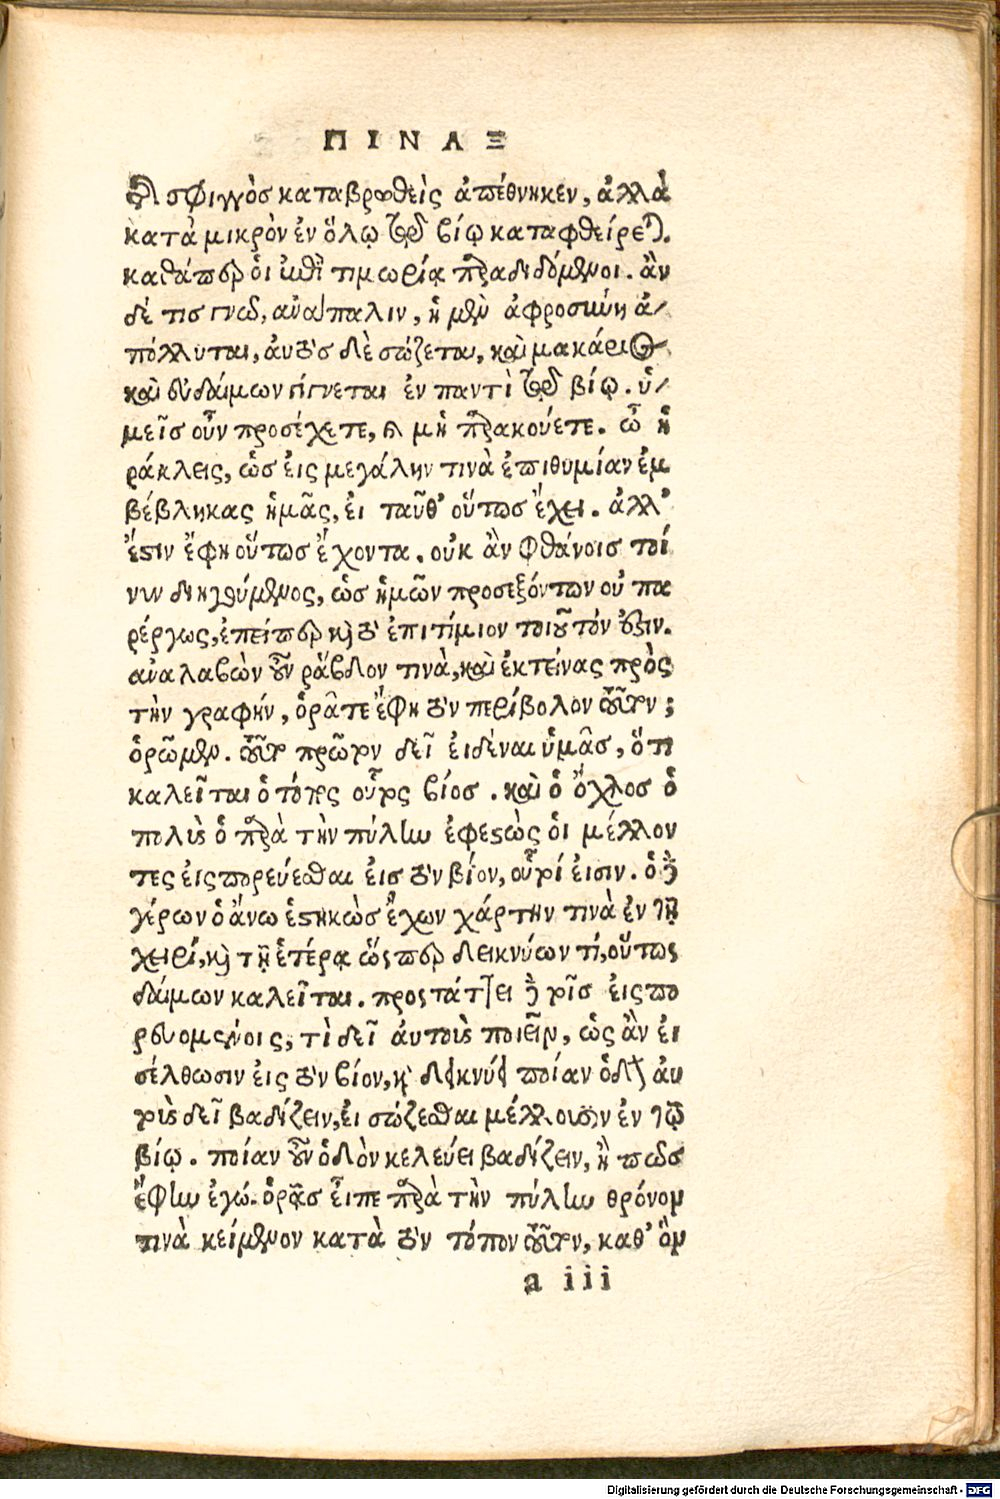 ΠΙΝΑΞ
σφιγγὸσ καταβρωθεὶς ἀπέθνηκεν, ἀλλὰ
κατὰ μικρὸν ἐν ὅλῳ τῷ βίῳ καταφθείρεται.
καθάπερ ὁι ἐπὶ τιμωρίᾳ παραδιδόμενοι. ἂν
δέ τισ γνῶ, ἀνάπαλιν, ἡ μὲν ἀφροσύνη ἀ/
πόλλυται, ἀυτὸσ δὲ σώζεται, καὶ μακάριος
καὶ ἐυδάιμων γίγνεται ἐν παντὶ τῷ βίῳ. ὑ/
μεῖσ οὖν προσέχετε, καὶ μὴ παρακούετε. ὦ ἡ
ράκλεις, ὡσ ἐις μεγάλην τινὰ ἐπιθυμίαν ἐμ
βέβληκας ἡμᾶς, ἐι ταῦθ' οὕτωσ ἔχει. ἀλλ'
ἔστιν ἔφη οὕτωσ ἔχοντα. οὐκ ἂν φθάνοισ τοί
νυν διηγούμενος, ὡσ ἡμῶν προσεξόντων οὐ πα
ρέργως, ἐπείπερ καὶ τὸ ἐπιτίμιον τοιοῦτόν ἐστιν.
ἀναλαβὼν οὖν ῥάβδον τινὰ, καὶ ἐκτείνας πρὸς
τὴν γραφήν, ὁρᾶτε ἔφη τὸν περίβολον τοῦτον;
ὁρῶμεν. τοῦτο πρῶτον δεῖ ἐιδέναι ὑμᾶσ, ὅτι
καλεῖται ὁ τόπος οὗτος βίοσ. καὶ ὁ ὄχλοσ ὁ
πολὺς ὁ παρὰ τὴν πύλην ἐφεστὼς ὁι μέλλον
τες ἐις πορεύεσθαι ἐισ τὸν βίον, οὗτοί ἐισιν. ὁ δὲ
γέρων ὁ ἄνω ἑστηκὼσ ἔχων χάρτην τινὰ ἐν τῇ
χειρί, καὶ τῇ ἑτέρᾳ ὥσπερ δεικνύων τί, οὕτως
δάιμων καλεῖται. προστάττει δὲ τοῖσ ἐις πο
ρευομένοις, τὶ δεῖ ἀυτοὺς ποιεῖν, ὡς ἂν ἐι
σέλθωσιν ἐις τὸν βίον, καὶ δεικνύει ποίαν ὁδὸν ἀυ
τοὺς δεῖ βαδίζειν, ἐι σώζεσθαι μέλλουσιν ἐν τῷ
βίῳ. ποίαν οὖν ὁδὸν κελεύει βαδίζειν, ἢ πῶσ
ἔφην ἐγώ. ὁρᾷσ ἐιπε παρὰ τὴν πύλην θρόνον
τινὰ κείμενον κατὰ τὸν τόπον τοῦτον, καθ' ὃν
a iii
Digitalisierung gefördert durch die Deutsche Forschungsgemeinschaft - DFG